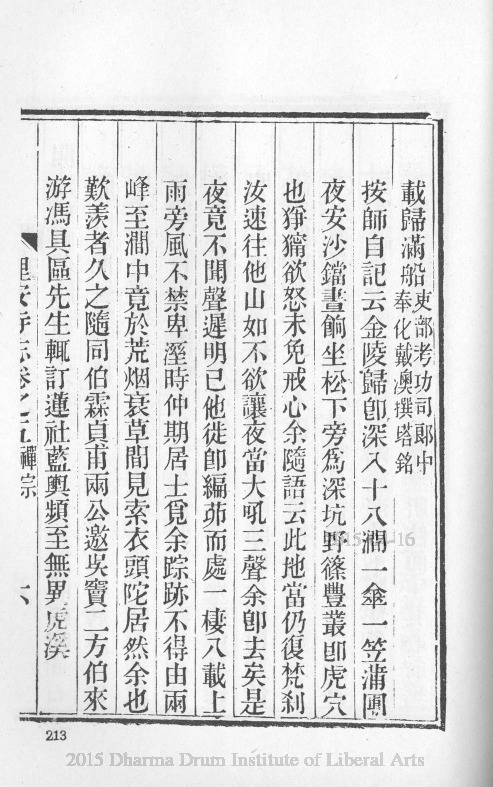 載歸滿船吏部考功司郎中奉化戴澳撰塔銘
按師自記云金陵歸卽深入十八澗一傘一笠蒲團
夜安沙鐺晝餉坐松下旁爲深坑野篠豐叢卽虎穴
也猙獰欲怒未免戒心余隨語云此地當仍復梵剎
汝速往他山如不欲讓夜當大吼三聲余卽去矣是
夜竟不聞聲遲明已他徙卽編茆而處一棲八載上
雨旁風不禁卑溼時仲期居士覓余踪跡不得由兩
峰至澗中竟於荒烟衰草間見索衣頭陀居然余也
歎羨者久之隨同伯霖貞甫兩公邀吳竇二方伯來
游馮具區先生輒訂蓮社藍輿頻至無異虎溪
理安寺志卷之五禪宗
六
213
2015 Dharma Drum Institute of Liberal Arts